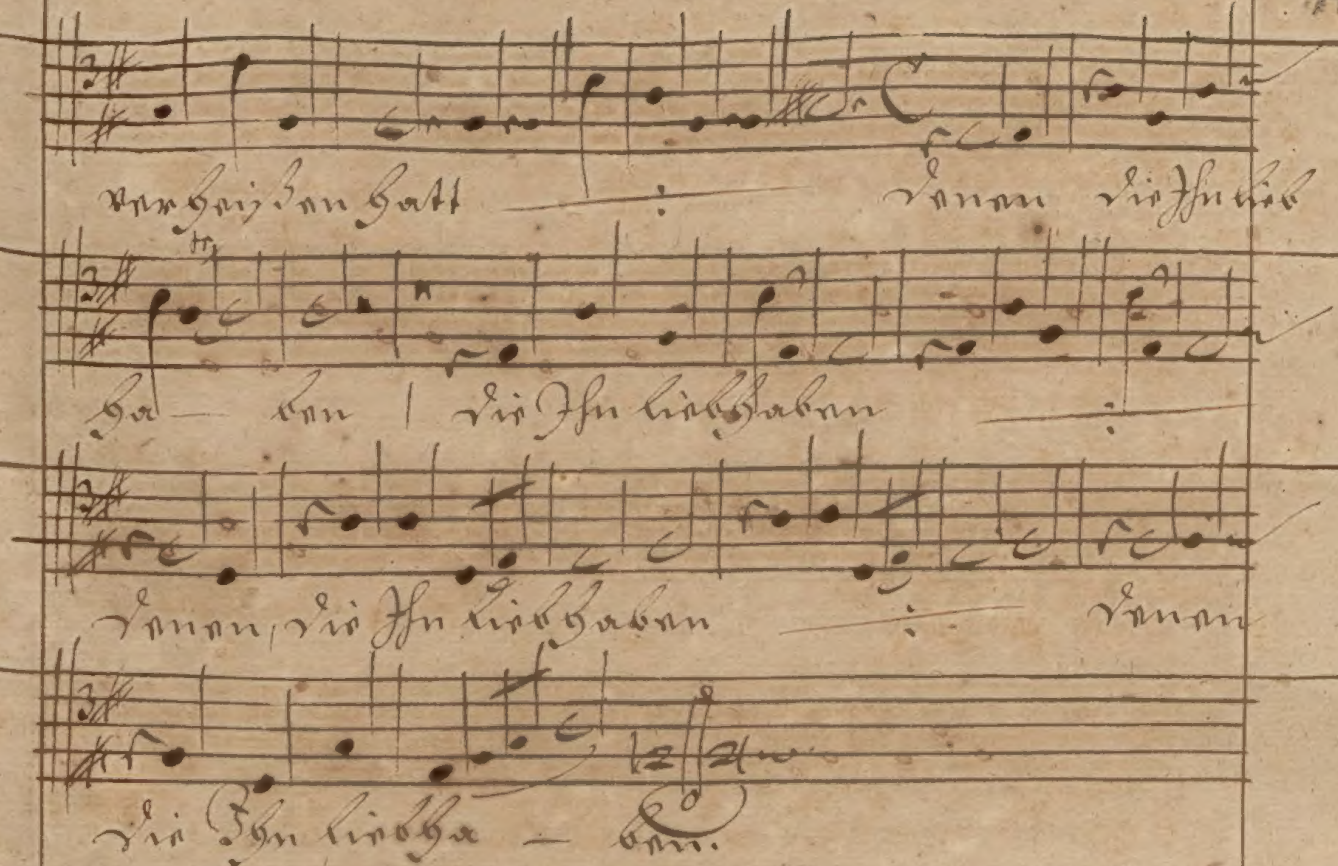 verheißen hatt denen die Ihn lieb
ha — ben | die Ihn liebhaben
denen, die Ihn liebhaben denen
die Ihn liebha — ben.